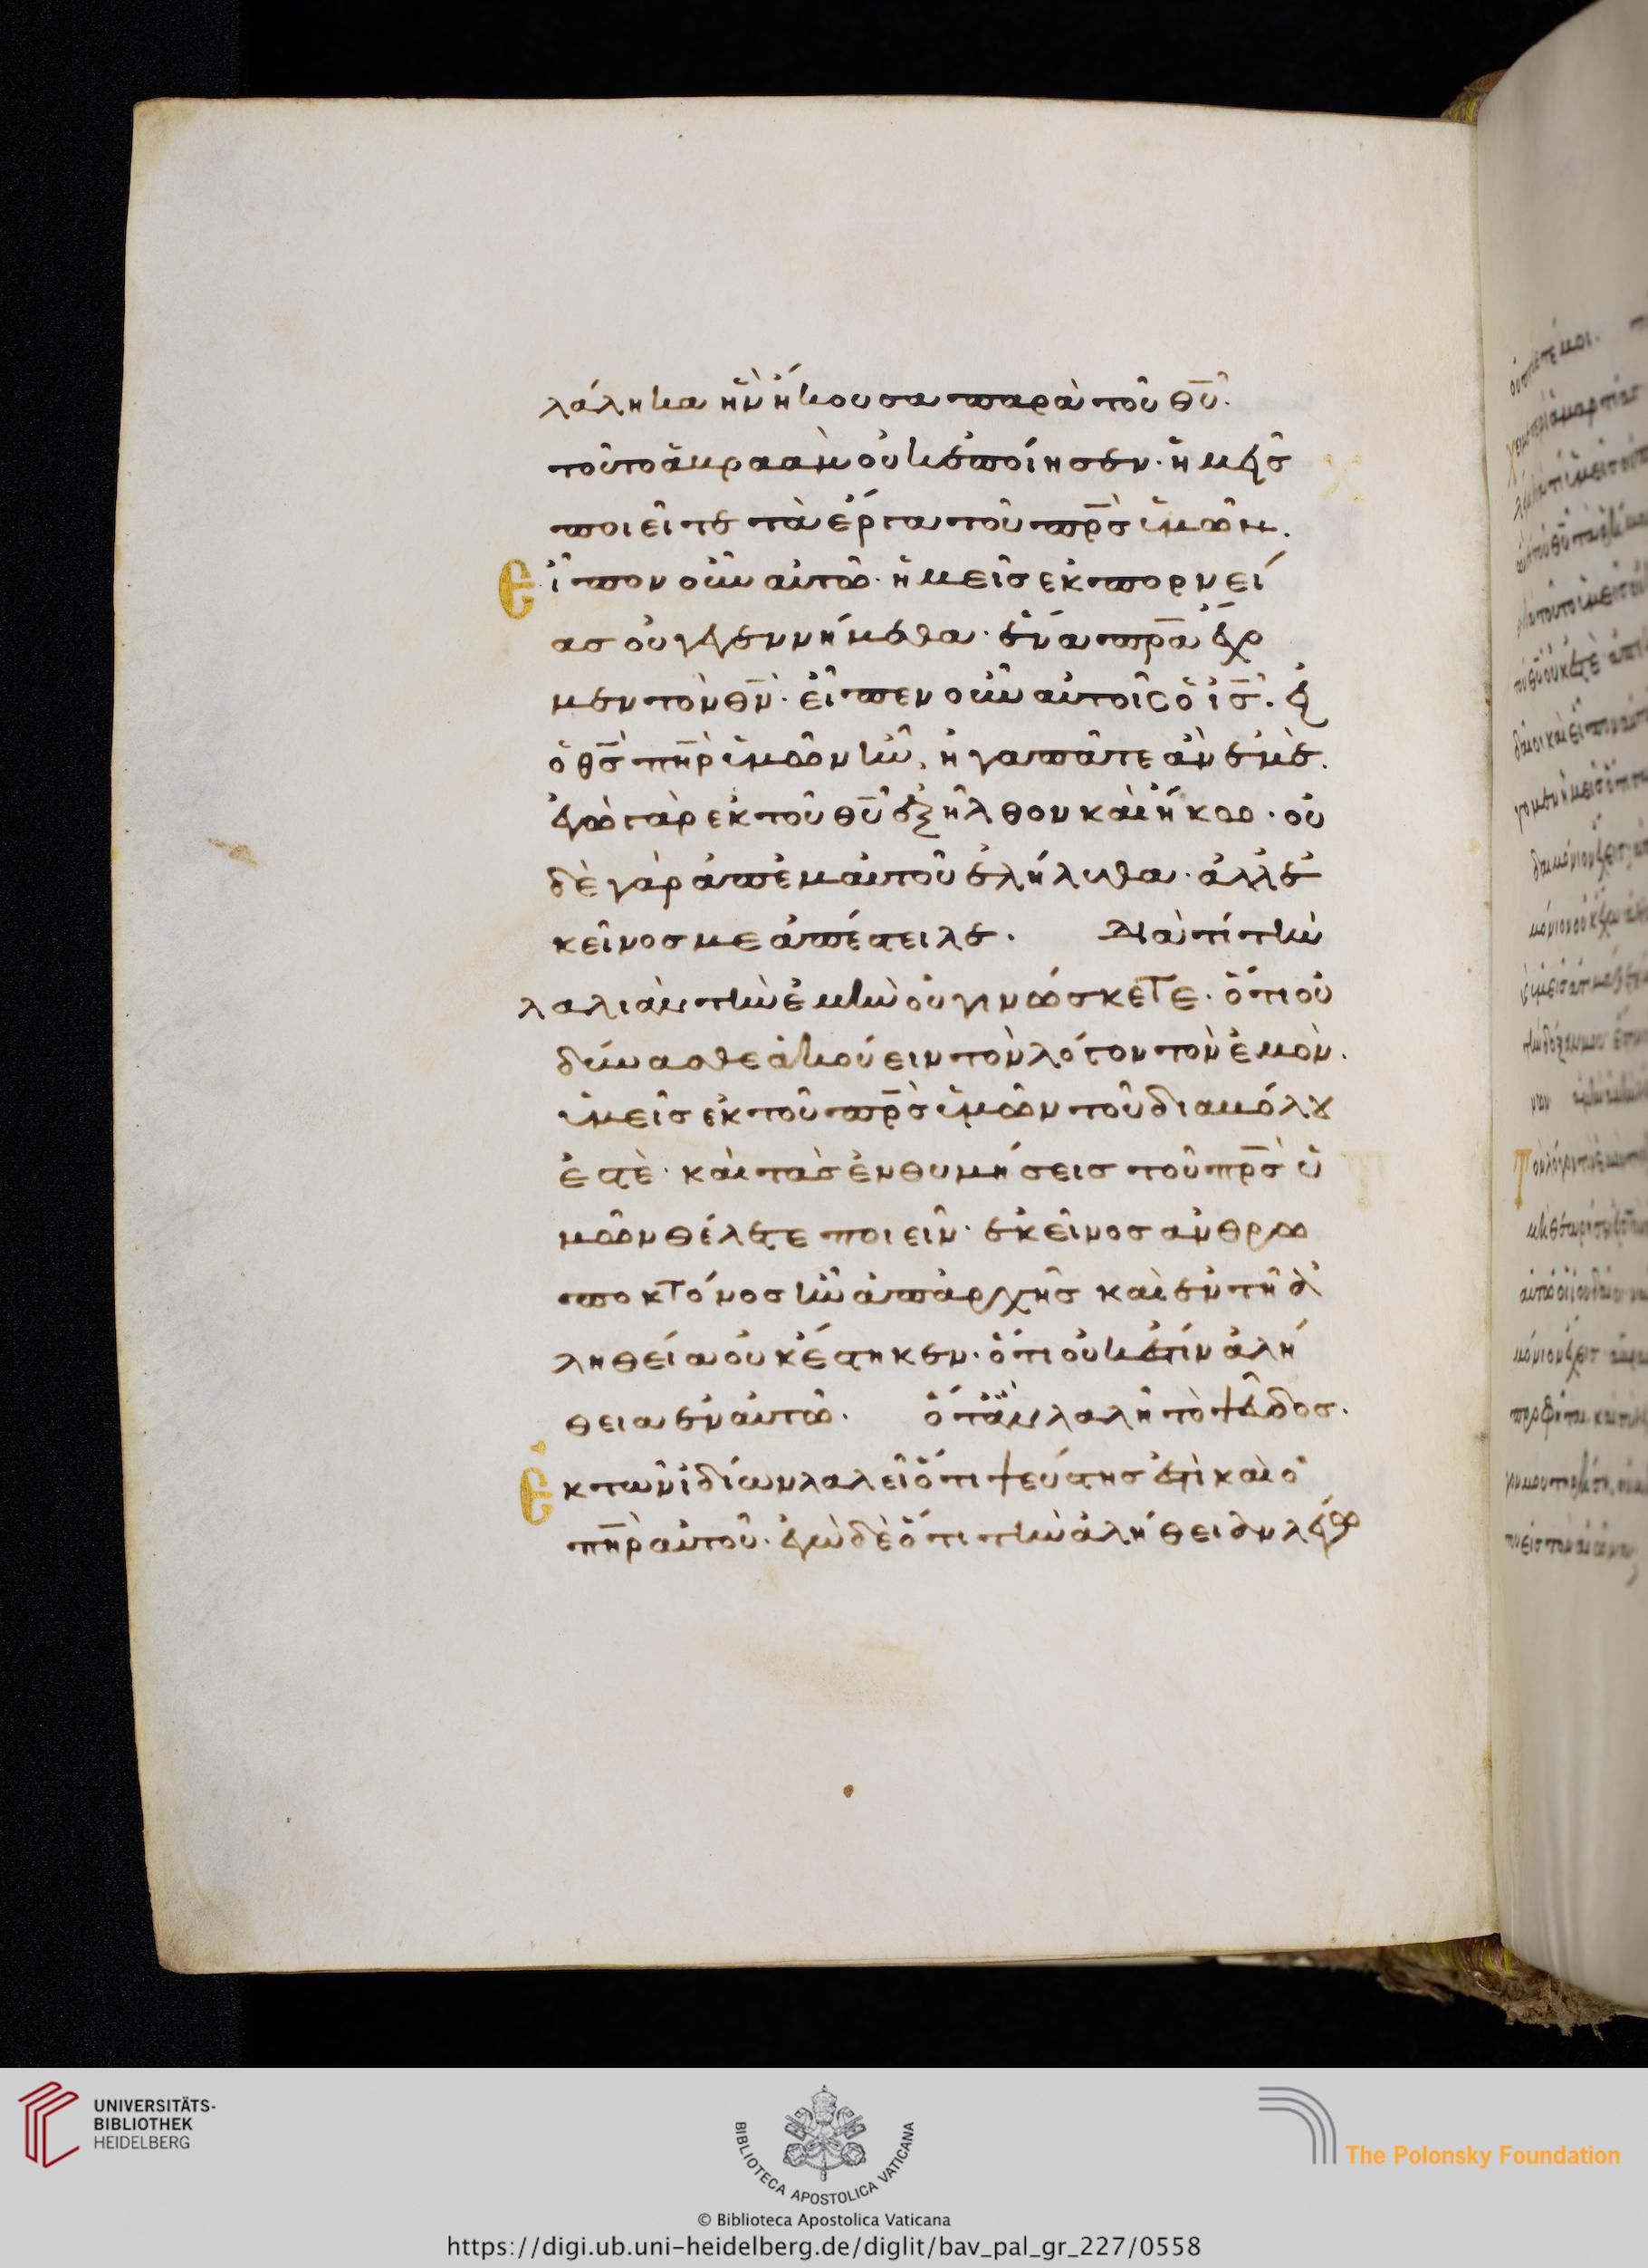 λάληκα ἣν ἤκουσα παρὰ τοῦ θῦ.
τοῦτο ἀβραὰμ οὐκ ἐποίησεν· ἡμεῖσ
ποιεῖτε τὰ ἔργα τοῦ πρ̅σ ὑμῶν.
Εἶπον οὖν αὐτῶ· ἡμεῖσ ἐκ πορνεί
ασ οὐ γεγεννήμεθα· ἕνα πρ̅α ἔχο
μεν τὸν θν̅· εἶπεν οὖν αὐτοῖσ ὁ ισ̅. εἰ
ὁ θσ̅ πηρ̅ ὑμῶν ἦν, ἠγαπᾶτε ἂν ἐμὲ.
ἐγὼ γὰρ ἐκ τοῦ θυ̅ ἐξῆλθον καὶ ἥκω· οὐ
δὲ γὰρ ἀπεμαυτοῦ ἐλήλυθα· ἀλλ' ἐ
κεῖνοσ με ἀπέστειλε. Διατί τὴν
λαλιὰν τὴν ἐμὴν οὐ γινώσκετε· ὅτι οὐ
δύνασθε ἀκούειν τὸν λόγον τὸν ἐμὸν.
ὑμεῖσ ἐκ τοῦ πρ̅σ ὑμῶν τοῦ διαβόλου
ἐστὲ· καὶ τὰσ ἐνθυμήσεισ τοῦ πρ̅σ ὑ
μῶν θέλετε ποιεῖν· ἐκεῖνοσ ἀνθρω
ποκτόνοσ ἦν ἀπαρχῆσ καὶ ἐν τῆ ἀ
ληθεία οὐκ ἕστηκεν· ὅτι οὐκ ἔστιν ἀλή
θεια ἐν αὐτῶ. ὅτἂν λαλῆ τὸ ψεῦδοσ.
Ἐκ τῶν ἰδίων λαλεῖ ὅτι ψεύστησ ἐστὶ καὶ ὁ
πηρ̅ αὐτοῦ· ἐγὼ δὲ ὅτι τὴν ἀλήθειαν λέγω
UNIVERSITÄTS-
BIBLIOTHEK
HEIDELBERG
BIBLIOTECA APOSTOLICA VATICANA
The Polonsky Foundation
© Biblioteca Apostolica Vaticana
https://digi.ub.uni-heidelberg.de/diglit/bav_pal_gr_227/0558